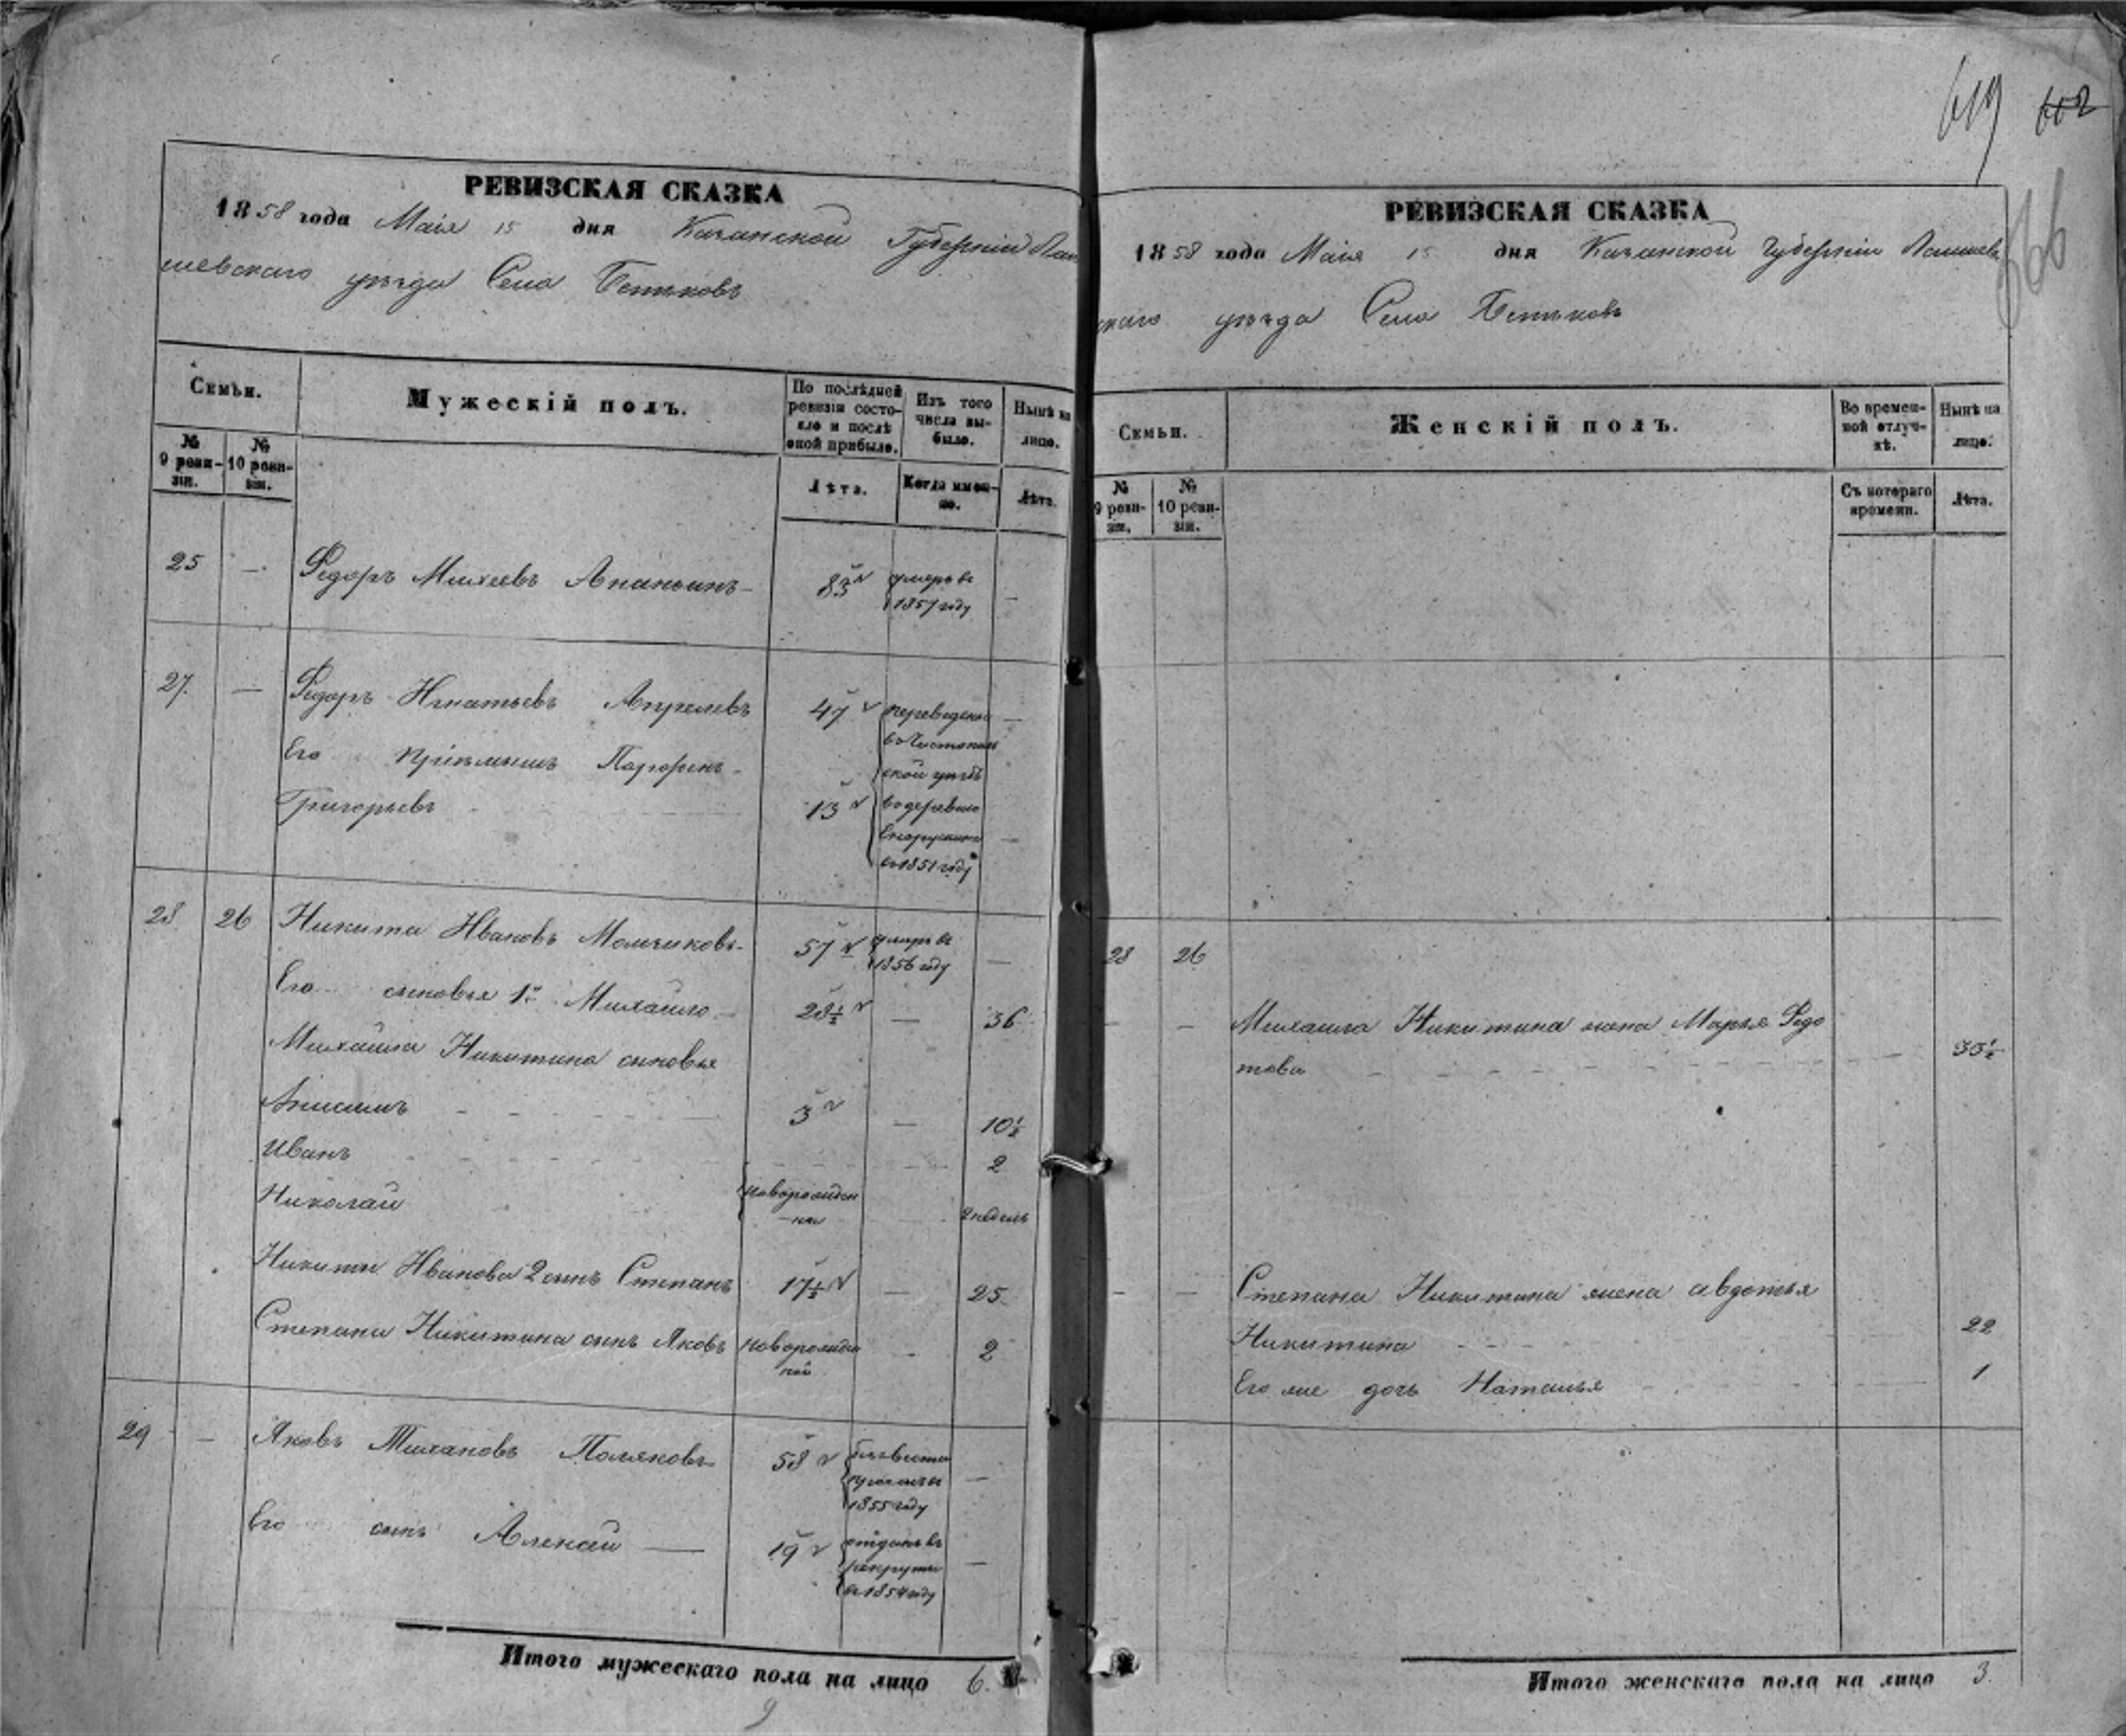 619 602
666
РЕВИЗСКАЯ СКАЗКА
1858 года Маія 15 дня Казанской Губерніи Лаи
шевскаго уѣзда Села Бетьковъ
Семьи.
Мужескій полъ.
По послѣдней ревизіи состояло и послѣ оной прибыло.
Изъ того числа выбыло.
Нынѣ на лицо.
№ 9 ревизіи.
№ 10 ревизіи.
Лѣта.
Когда именно.
Лѣта.
25 — Федоръ Михеевъ Ананьинъ — 83 умеръ въ 1857 году —
27. — Федоръ Игнатьевъ Апрелевъ 47 переведены —
Его пріемышъ Парфенъ въ Чистополь
ской уѣздъ
Григорьевъ 13 въ деревню
—
въ 1851 году
28 26 Никита Ивановъ Молчиковъ 57 умеръ въ 1856 году —
Его сыновья 1й Михайло 28½ — 36
Михайла Никитина сыновья
Анисимъ 3 — 10½
Иванъ 2
Николай новорожден
ные 2 недель
Никиты Иванова 2 сынъ Степанъ 17½ — 25
Степана Никитина сынъ Яковъ новорожден
ной — 2
29 — Яковъ Поляковъ 58 безвестно —
1855 году
Его сынъ Алексей — 19 отданъ въ —
рекруты
въ 1854 году
Итого мужескаго пола на лицо 6.
9
РЕВИЗСКАЯ СКАЗКА
1858 года Маія 15 дня Казанской Губерніи Лаишев
скаго уѣзда Села Бетьковъ
Семьи.
Женскій полъ.
Во временной отлучкѣ.
Нынѣ на лицо.
№ 9 ревизіи.
№ 10 ревизіи.
Съ котораго времени.
Лѣта.
28 26
— — Михаила Никитина жена Марья Федо
това 33½
— — Степана Никитина жена Авдотья
Никитина 22
Его же дочь Наталья 1
Итого женскаго пола на лицо 3.